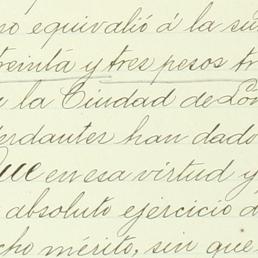 no equivalió á la su
treinta y tres pesos tr
a la Ciudad de Lon
erdantes han dado
Que en esa virtud y
absoluto ejercicio d
cho mérito, sin que